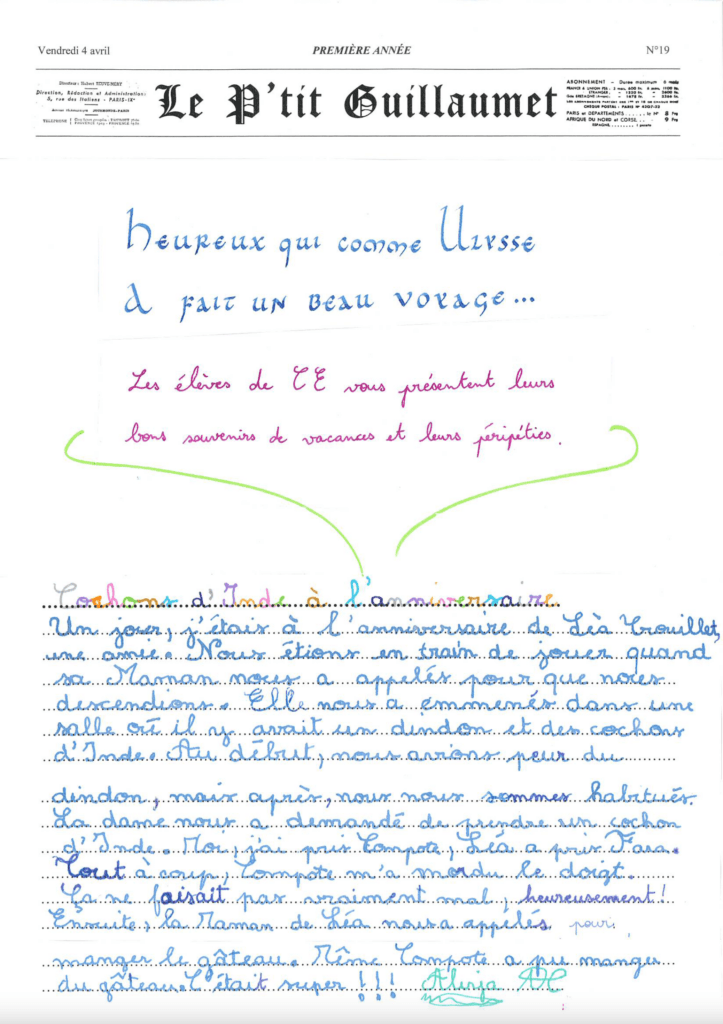 Vendredi 4 avril
PREMIÈRE ANNÉE
N°19
Direction, Rédaction et Administration
5, rue des Italiens - PARIS-IXe
Le P'tit Guillaumet
ABONNEMENT - Durée maximum 6 mois
PARIS et DEPARTEMENTS ...... le N° 8 Frs
AFRIQUE DU NORD et CORSE... 9 Frs
Heureux qui comme Ulysse
A fait un beau voyage...
Les élèves de CE vous présentent leurs
bons souvenirs de vacances et leurs péripéties.
Cochons d'Inde à l'anniversaire
Un jour, j'étais à l'anniversaire de Léa Trouillet,
une amie. Nous étions en train de jouer quand
sa Maman nous a appelés pour que nous
descendions. Elle nous a emmenés dans une
salle où il y avait un dindon et des cochons
d'Inde. Au début, nous avions peur du
dindon, mais après, nous nous sommes habitués.
La dame nous a demandé de prendre un cochon
d'Inde. Moi, j'ai pris Compote, Léa a pris
Tout à coup, Compote m'a mordu le doigt.
Ça ne faisait pas vraiment mal, heureusement!
Ensuite, la Maman de Léa nous a appélés pour
manger le gâteau. Même Compote a pu manger
du gâteau. C'était super !!!